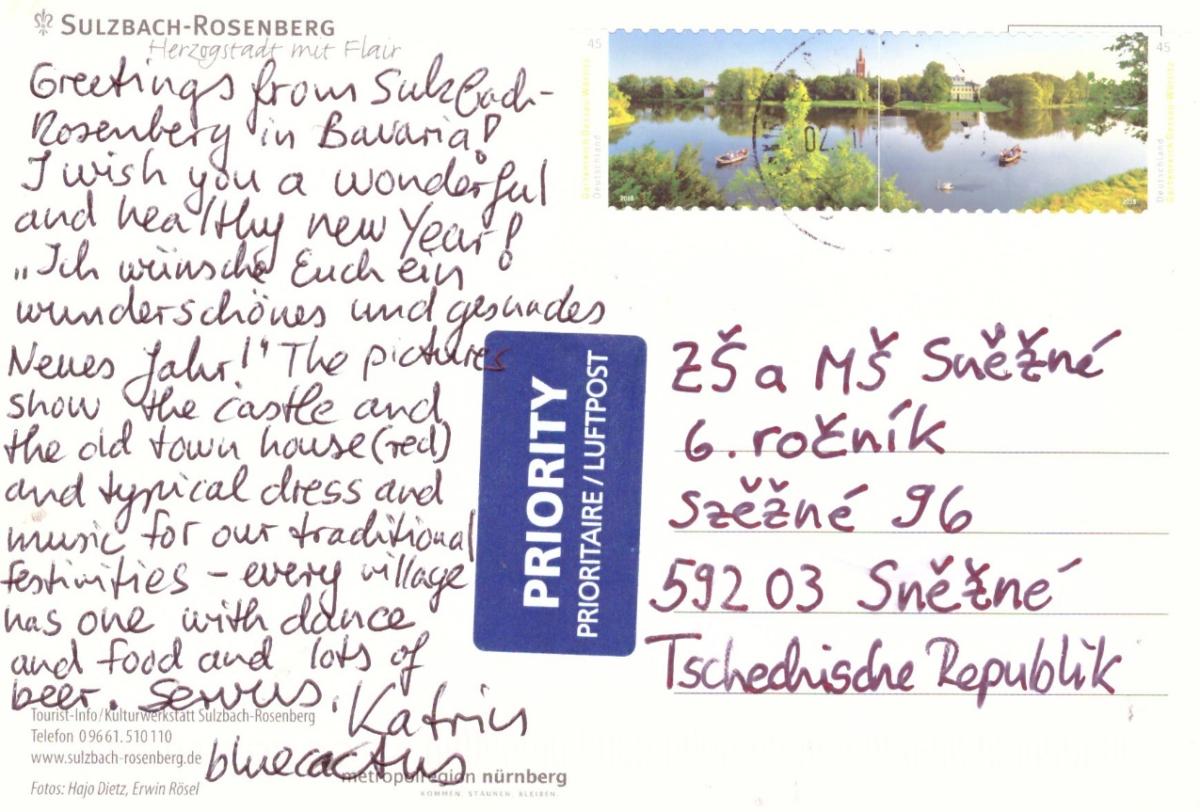 SULZBACH-ROSENBERG
Herzogstadt mit Flair
Greetings from Sulzbach-
Rosenberg in Bavaria!
I wish you a wonderful
and healthy new Year!
„Ich wünsche Euch ein
wunderschönes und gesundes
Neues Jahr!" The pictures
show the castle and
the old town house (red)
and typical dress and
music for our traditional
festivities - every village
has one with dance
and food and lots of
beer. Servus,
Katrin
bluecactus
Tourist-Info/Kulturwerkstatt Sulzbach-Rosenberg
Telefon 09661.510110
www.sulzbach-rosenberg.de
Fotos: Hajo Dietz, Erwin Rösel
metropolregion nürnberg
KOMMEN. STAUNEN. BLEIBEN.
45
Gartenreich Dessau-Wörlitz
Deutschland
2018
02.1
45
Deutschland
Gartenreich Dessau-Wörlitz
2018
PRIORITY
PRIORITAIRE / LUFTPOST
ZŠ a MŠ Sněžné
6. ročník
Szěžné 96
592 03 Sněžné
Tschechische Republik